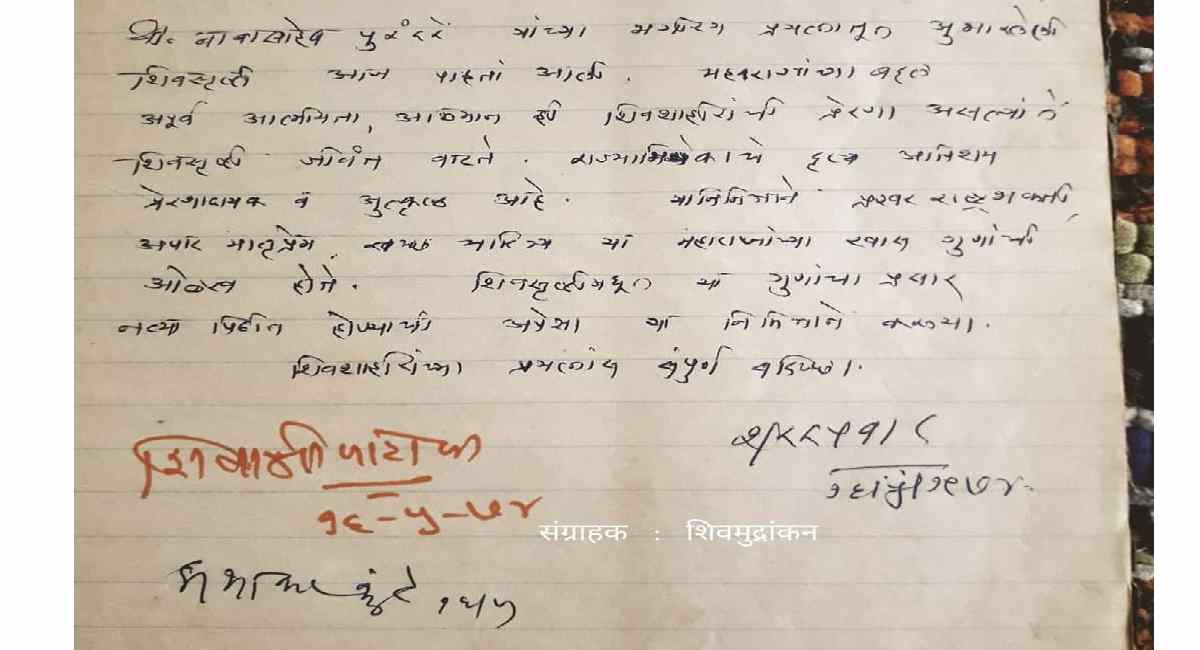 श्री. बाबासाहेब पुरंदरे यांच्या भगीरथ प्रयत्नातून अुभारलेली
शिवसृष्टी आज पाहता आली. महाराजांच्या बद्दल
अपूर्व आत्मियता, अभिमान ही शिवशाहीरांची प्रेरणा असल्याने
शिवसृष्टी जीवंत वाटते. राज्याभिषेकाचे दृश्य अतिशय
प्रेरणादायक व अुत्कृष्ठ आहे. यानिमित्ताने प्रखर राष्ट्रभक्ती,
अपार मातृप्रेम, स्वच्छ चारित्र्य या महाराजांच्या खास गुणांची
ओळख होते. शिवसृष्टीमधून या गुणांचा प्रसार
नव्या पिढीत होण्याची अपेक्षा या निमित्ताने करूया.
शिवशाहीरांच्या प्रयत्नांस संपूर्ण
शरद पवार
१६।५।१९७४
शिवाजी
१६-५-७४
संग्राहक : शिवमुद्रांकन
प्रभाकर कुंटे १६५